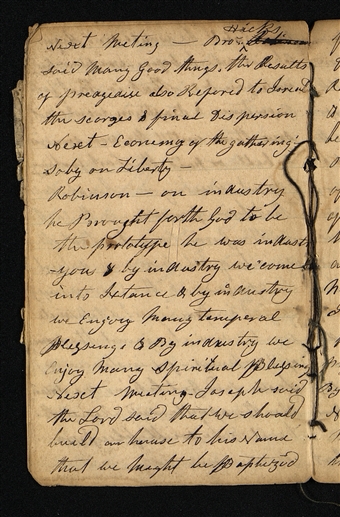 Hicks
Next Meting — Bro.^
said Many Good things, the Results
of preagedise also Refered to Isreal
the scorges & final Dispersion
Nexet — Economy of the gathering
Soby on Liberty —
Robinson — on industry
he Brought forth God to be
the prototype he was indust
-yous & by industry we come
into Istance & by industry
we Enjoy Many temperal
Blessings & By industry we
Enjoy Many Spiritual Blessin
Nexet Meeting. Joseph said
the Lord said that we should
build an house to his Name
that we might be Baptized